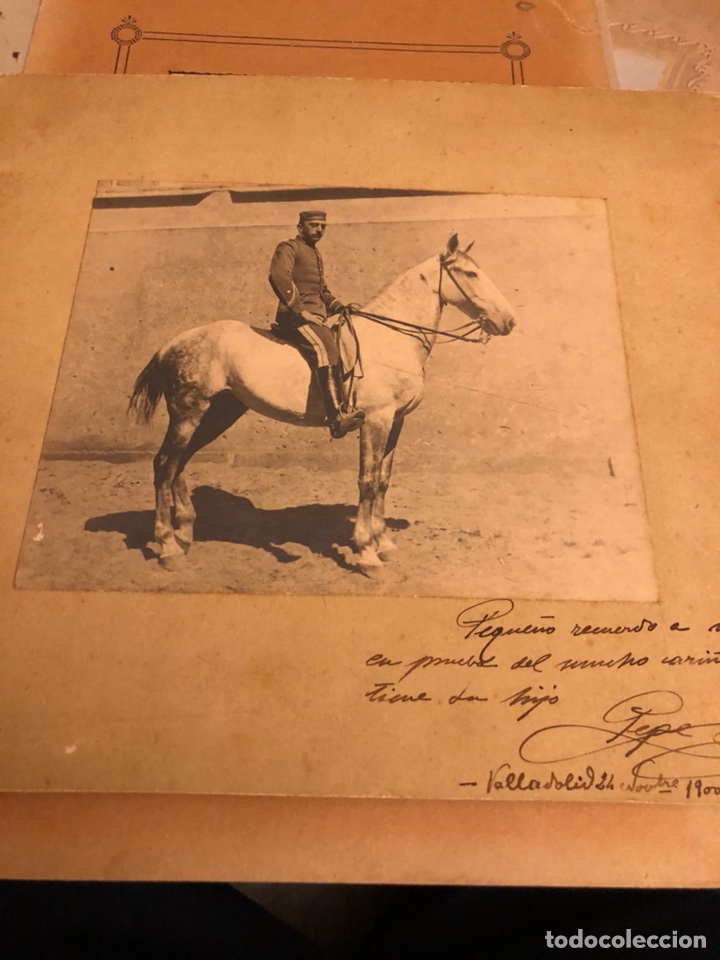 Pequeño recuerdo a
en prueba del mucho cariñ
tiene su hijo
Pepe
– Valladolid 24 1900
todocoleccion